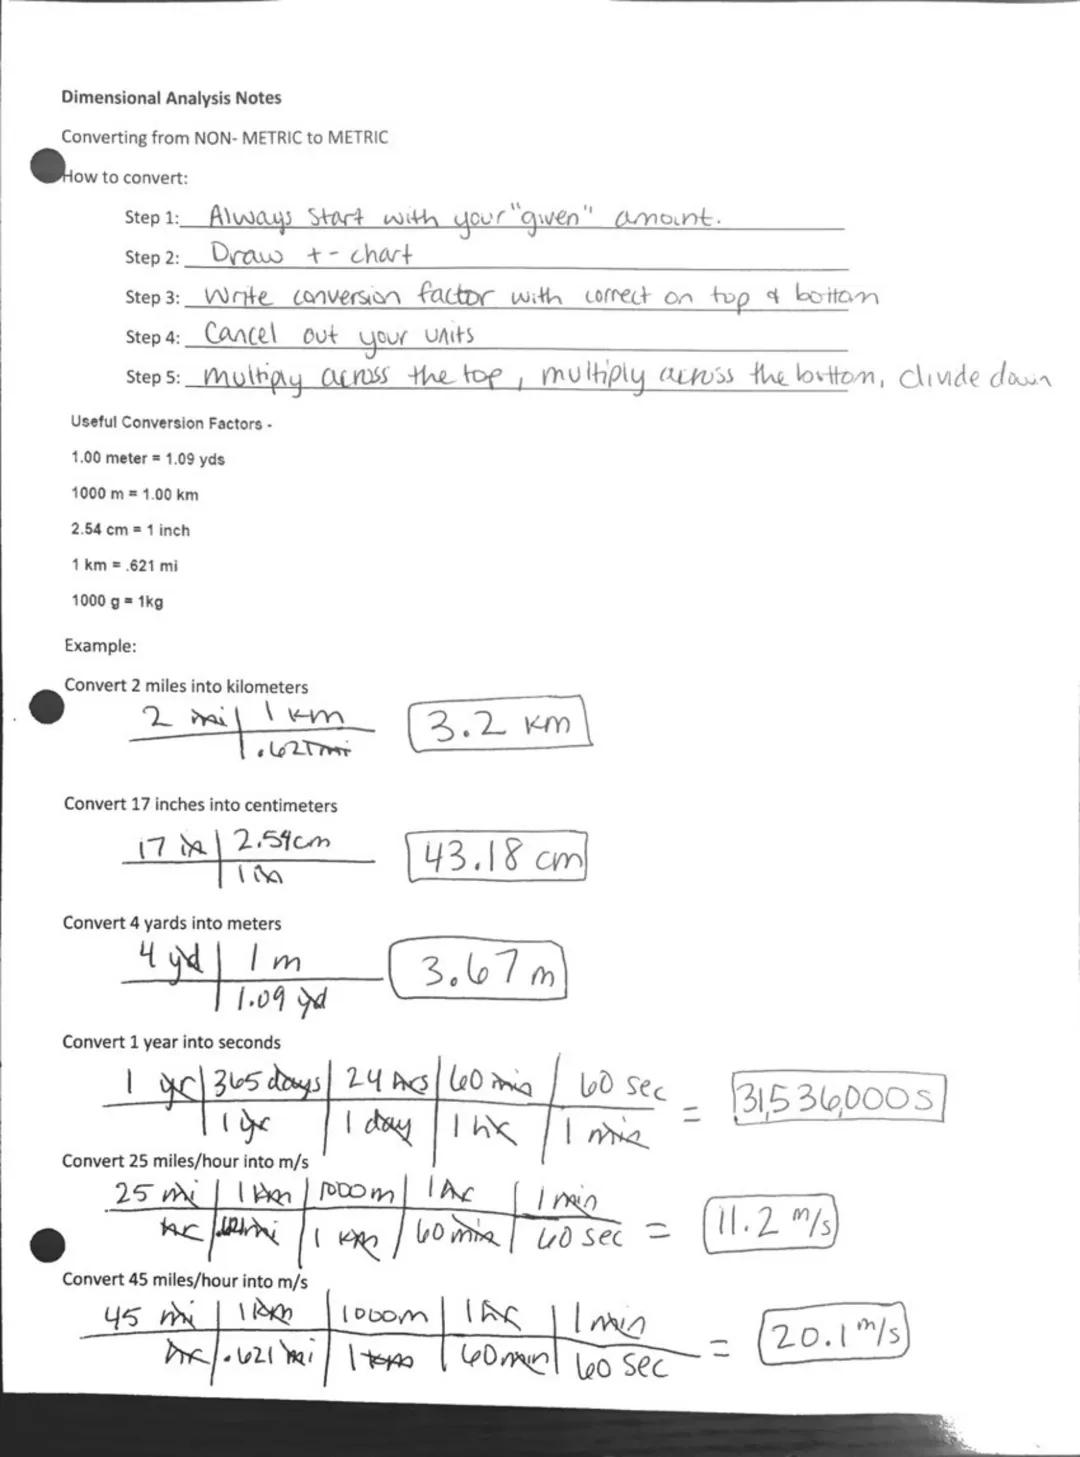 Dimensional Analysis Notes
Converting from NON- METRIC to METRIC
How to convert:
Step 1: Always start with your "given" amount.
Step 2: Draw t - chart
Step 3: Write conversion factor with correct on top & bottom
Step 4: Cancel out your units
Step 5: multiply across the top, multiply across the bottom, divide down
Useful Conversion Factors -
1.00 meter = 1.09 yds
1000 m = 1.00 km
2.54 cm = 1 inch
1 km = .621 mi
1000 g = 1kg
Example:
Convert 2 miles into kilometers
2 mi | 1 km
.621 mi
3.2 km
Convert 17 inches into centimeters
17 in | 2.54cm
1 in
43.18 cm
Convert 4 yards into meters
4 yd | 1 m
1.09 yd
3.67 m
Convert 1 year into seconds
1 yr | 365 days | 24 hrs | 60 min | 60 sec
1 yr | 1 day | 1 hr | 1 min
= 31,536,000 s
Convert 25 miles/hour into m/s
25 mi | 1 km | 1000m | 1 hr | 1 min
hr | .621 mi | 1 km | 60 min | 60 sec
= 11.2 m/s
Convert 45 miles/hour into m/s
45 mi | 1 km | 1000m | 1 hr | 1 min
hr | .621 mi | 1 km | 60 min | 60 sec
= 20.1 m/s